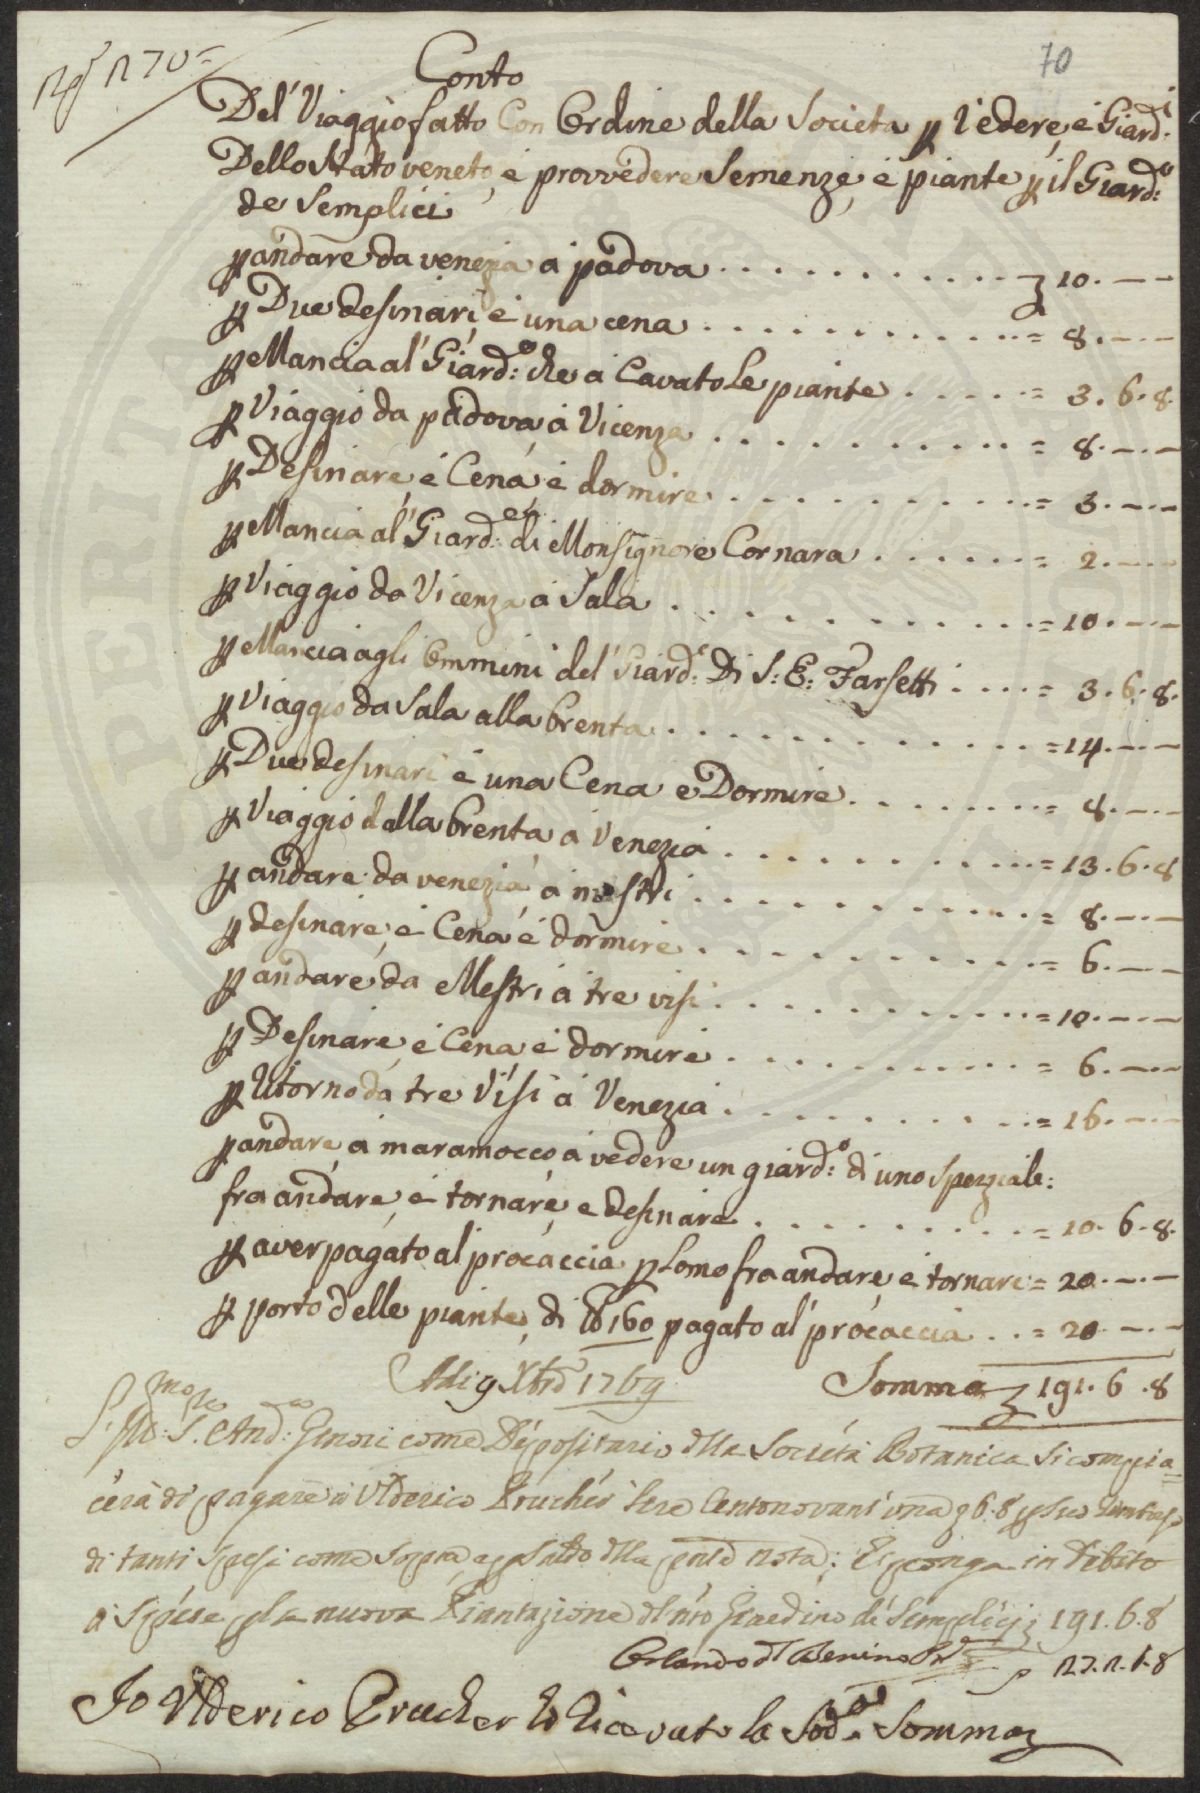 70
Conto
Del' Viaggio fatto Con Ordine della Societa p Vedere i Giard.i
Dello Stato veneto, é provvedere Semenze, é piante p il Giard:o
de Semplici
p andare da venezia a padova . . . . . . . . . 10. — —
p Due desinari, é una cena . . . . . . . . . = 8. — —
p Mancia al' Giard:o che á Cavato Le piante . . . . . = 3. 6. 8.
p Viaggio da padova, á Vicenza . . . . . . . . . = 8. — —
p Desinare é Cena, é dormire . . . . . . . . . = 3. — —
p Mancia al' Giard:e di Monsignore Cornara . . . . . . = 2. — —
p Viaggio da Vicenza á Sala . . . . . . . . . = 10. — —
p Mancia agli Ommini del' Giard:o Di S: E: Farsetti . . . . = 3. 6. 8.
p Viaggio da Sala alla brenta . . . . . . . . . = 14. — —
p Due desinari é una Cena e Dormire . . . . . . . = 8. — —
p Viaggio dalla brenta á Venezia . . . . . . . . . = 13. 6. 8
p andare da venezia á mestri . . . . . . . . . = 8. — —
p desinare, é Cena é dormire . . . . . . . . . = 6. — —
p andare da Mestri á tre visi . . . . . . . . . = 10. — —
p Desinare é Cena é dormire . . . . . . . . . = 6. — —
p Ritorno da tre Visi á Venezia . . . . . . . . . = 16. — —
p andare, á maramocco á vedere un giard:o di uno Speziale:
fra andare, é tornare, e desinare . . . . . . . . . = 10. 6. 8.
p aver pagato al procaccia p Lomo fra andare, é tornare = 20. — —
p porto delle piante, di lb 160 pagato al' procaccia . . = 20. — —
Adi 9 Xbre 1769 Somma 191. 6. 8
S. And: Ginori come Depositario dlla Società Botanica Si compia=
cerà di pagare à Ulderico Prucher Lire Centonovant'una 6.8 p Suo rimborso
di tanti Spesi come Sopra e p Saldo dlla pnte nota; E ponga in debito
à Spese p la nuova Piantazione dl nro Giardino de Semplici 191. 6. 8
Orlando dl Benino
Io Ulderico Prucher ho Ricevuto la Sod:a Somma